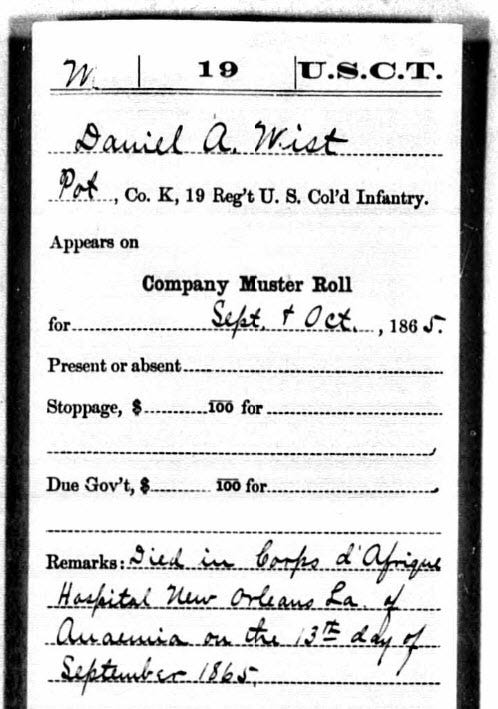 W. 19 U.S.C.T.
Daniel A. Wist
Pvt, Co. K, 19 Reg't U. S. Col'd Infantry.
Appears on
Company Muster Roll
for Sept. & Oct., 1865.
Present or absent
Stoppage, $ 100 for
Due Gov't, $ 100 for
Remarks: Died in Corps d'Afrique
Hospital New Orleans La. of
Anaemia on the 13th day of
September 1865.